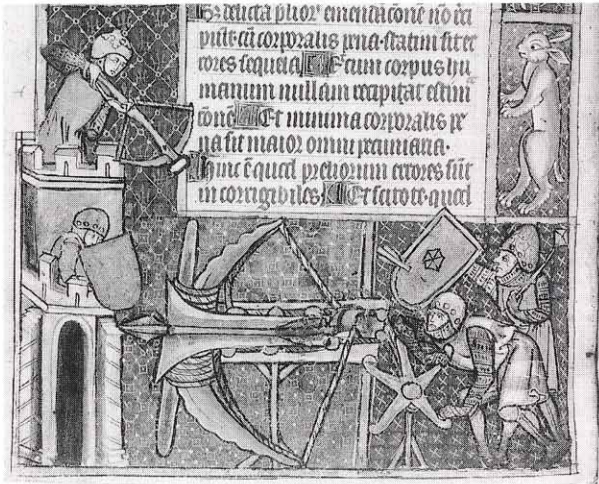 delicta plior' emendacōnē nō reci
piūt cū corporalis pena statim sit er
rores sequela Et cum corpus hu
manum nullam recipiat estima
cōnē Et minima corporalis pe
na sit maior omni pecuniaria.
hinc ē quod preliorum errores sūt
in corrigibiles Et scitote quod